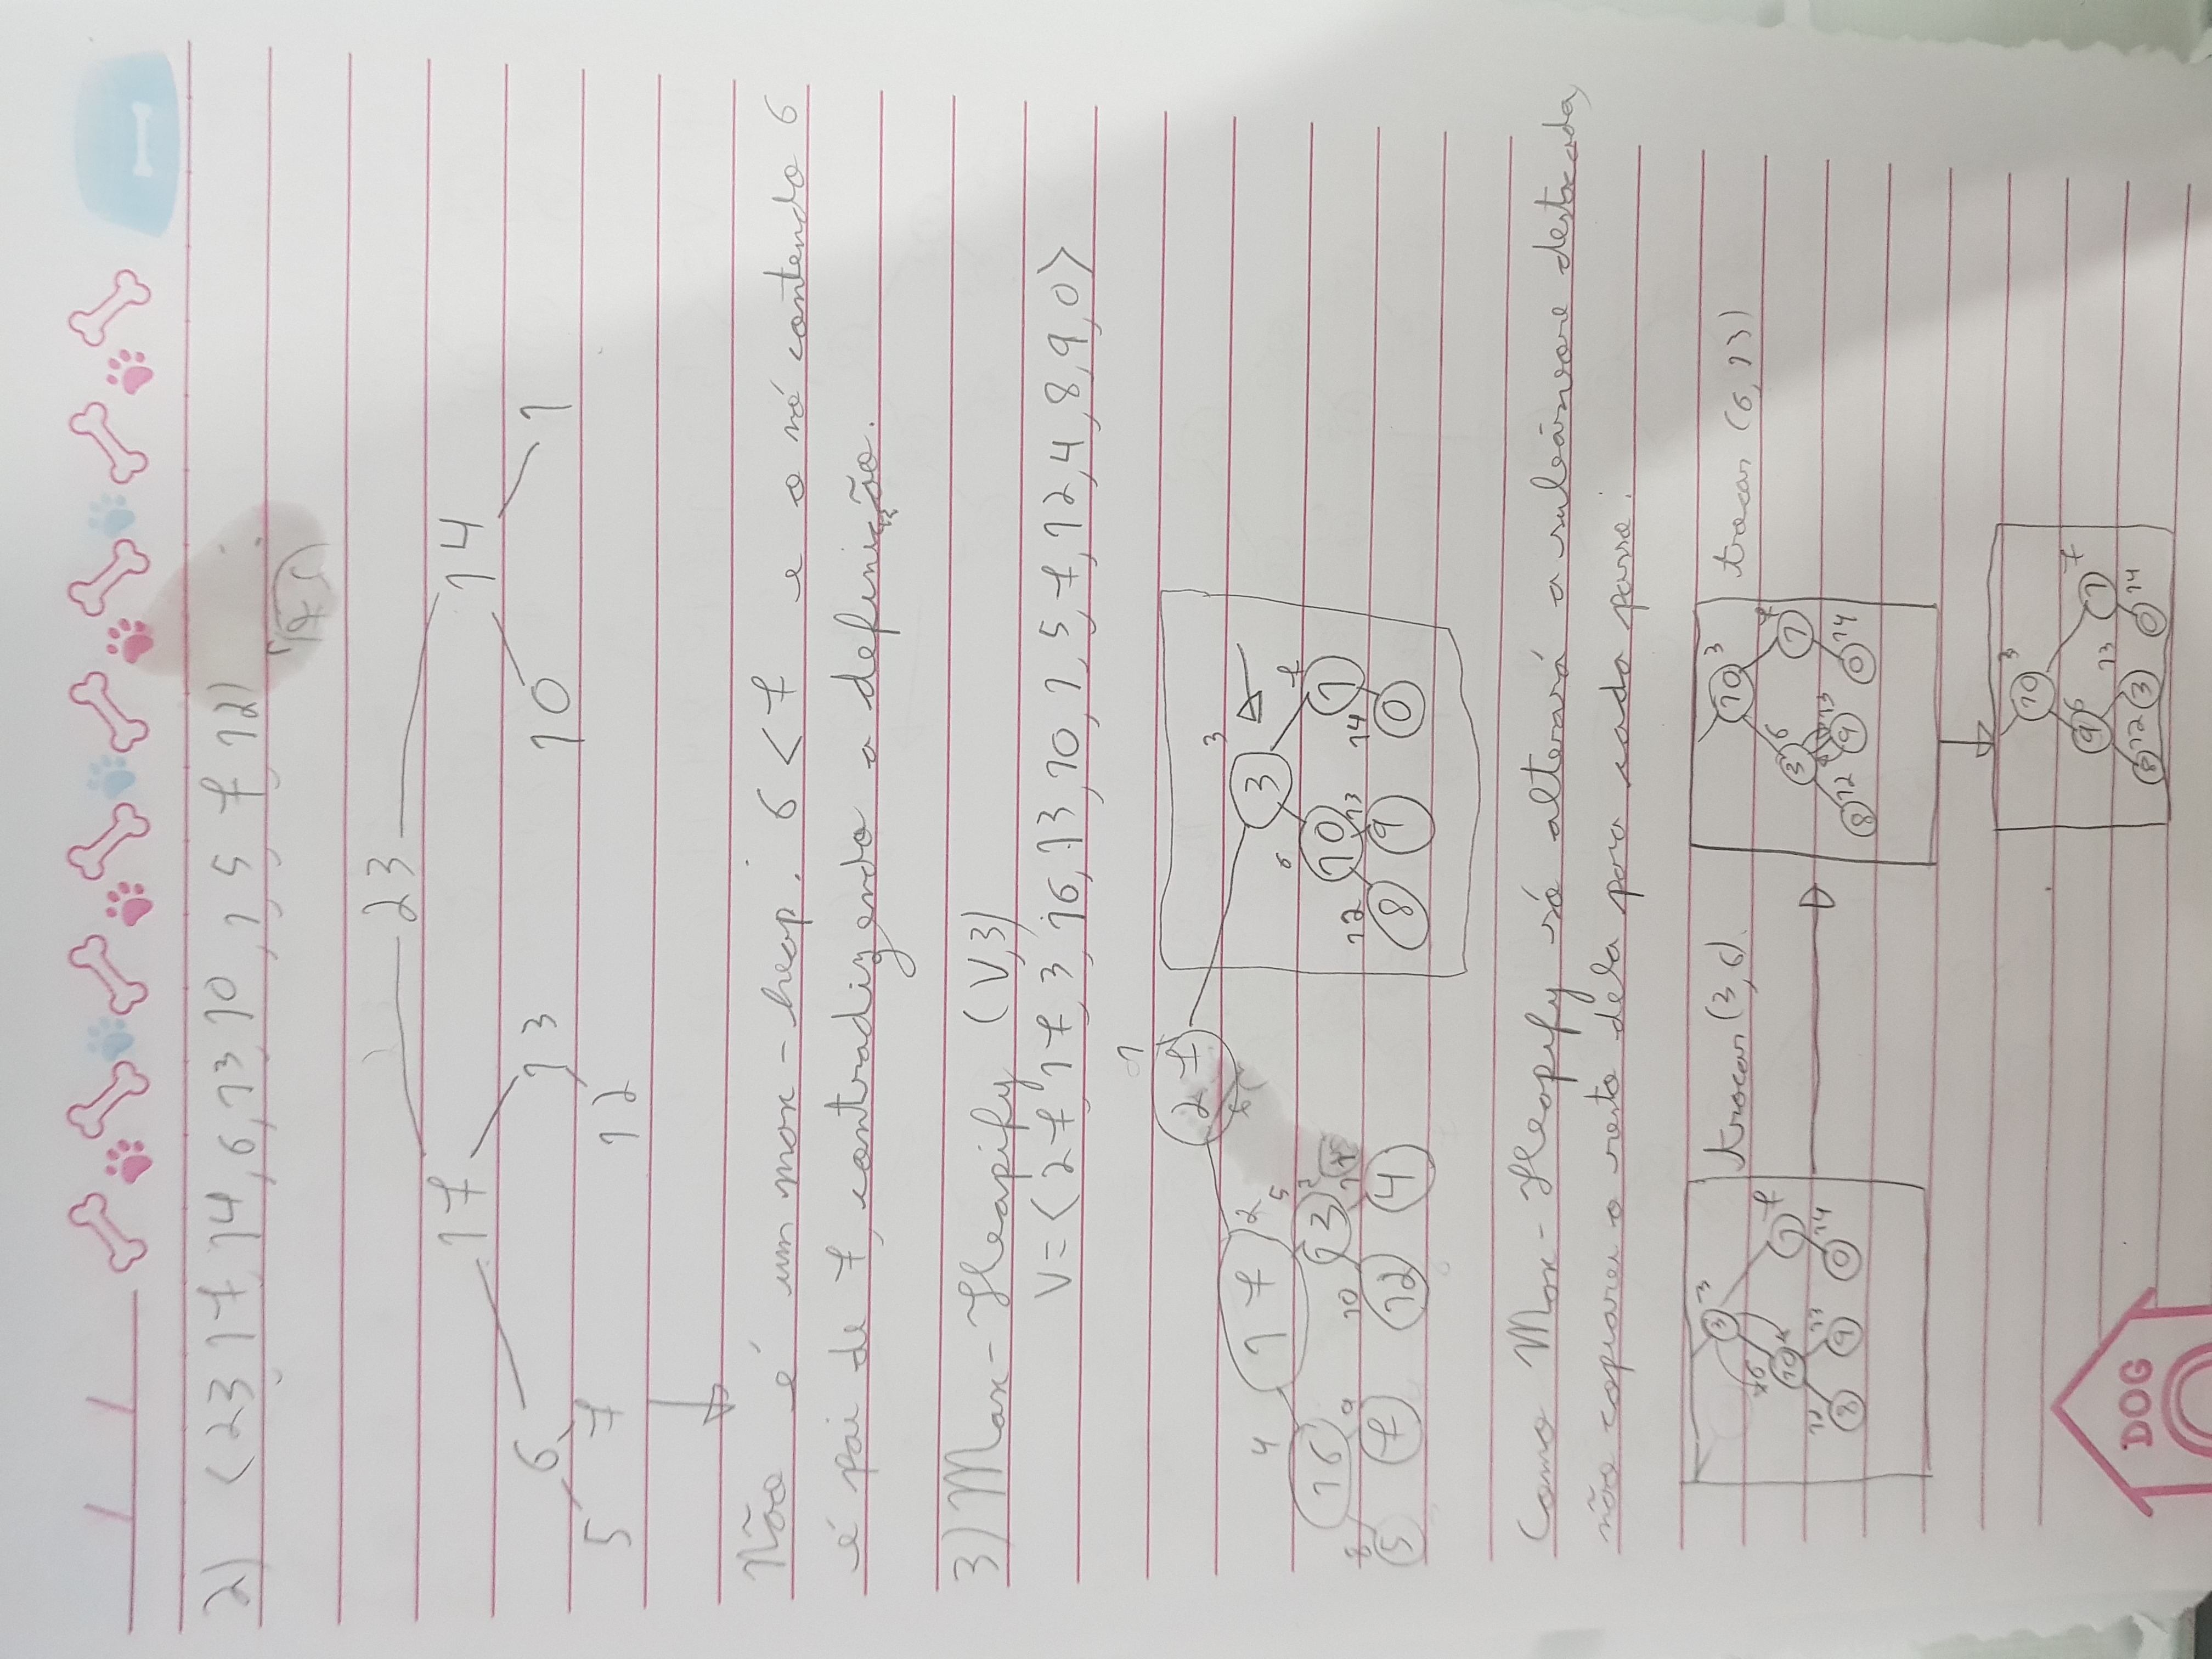 2) <23, 17, 14, 6, 13, 10, 1, 5, 7, 12>
23
17 14
6 13 10 1
5 7 12
Não é um max-heap. 6 < 7 e o nó contendo 6
é pai de 7, contradizendo a definição.
3) Max-Heapify (V,3)
V = <27, 17, 3, 16, 13, 10, 1, 5, 7, 12, 4, 8, 9, 0>
1
27
3
4 17 2 3
5 6 7
16 13 10 1
8 9 10 11 12 13 14
5 7 12 4 8 9 0
Como Max-Heapify só alterará a subárvore destacada,
não copiarei o resto dela para cada passo.
3 3 trocar (3,6). 10 3 trocar (6,13)
6 7 6 7
10 1 3 1
12 13 14 12 13 14
8 9 0 8 9 0
10 3
9 6 1 7
12 13 14
8 3 0
DOG